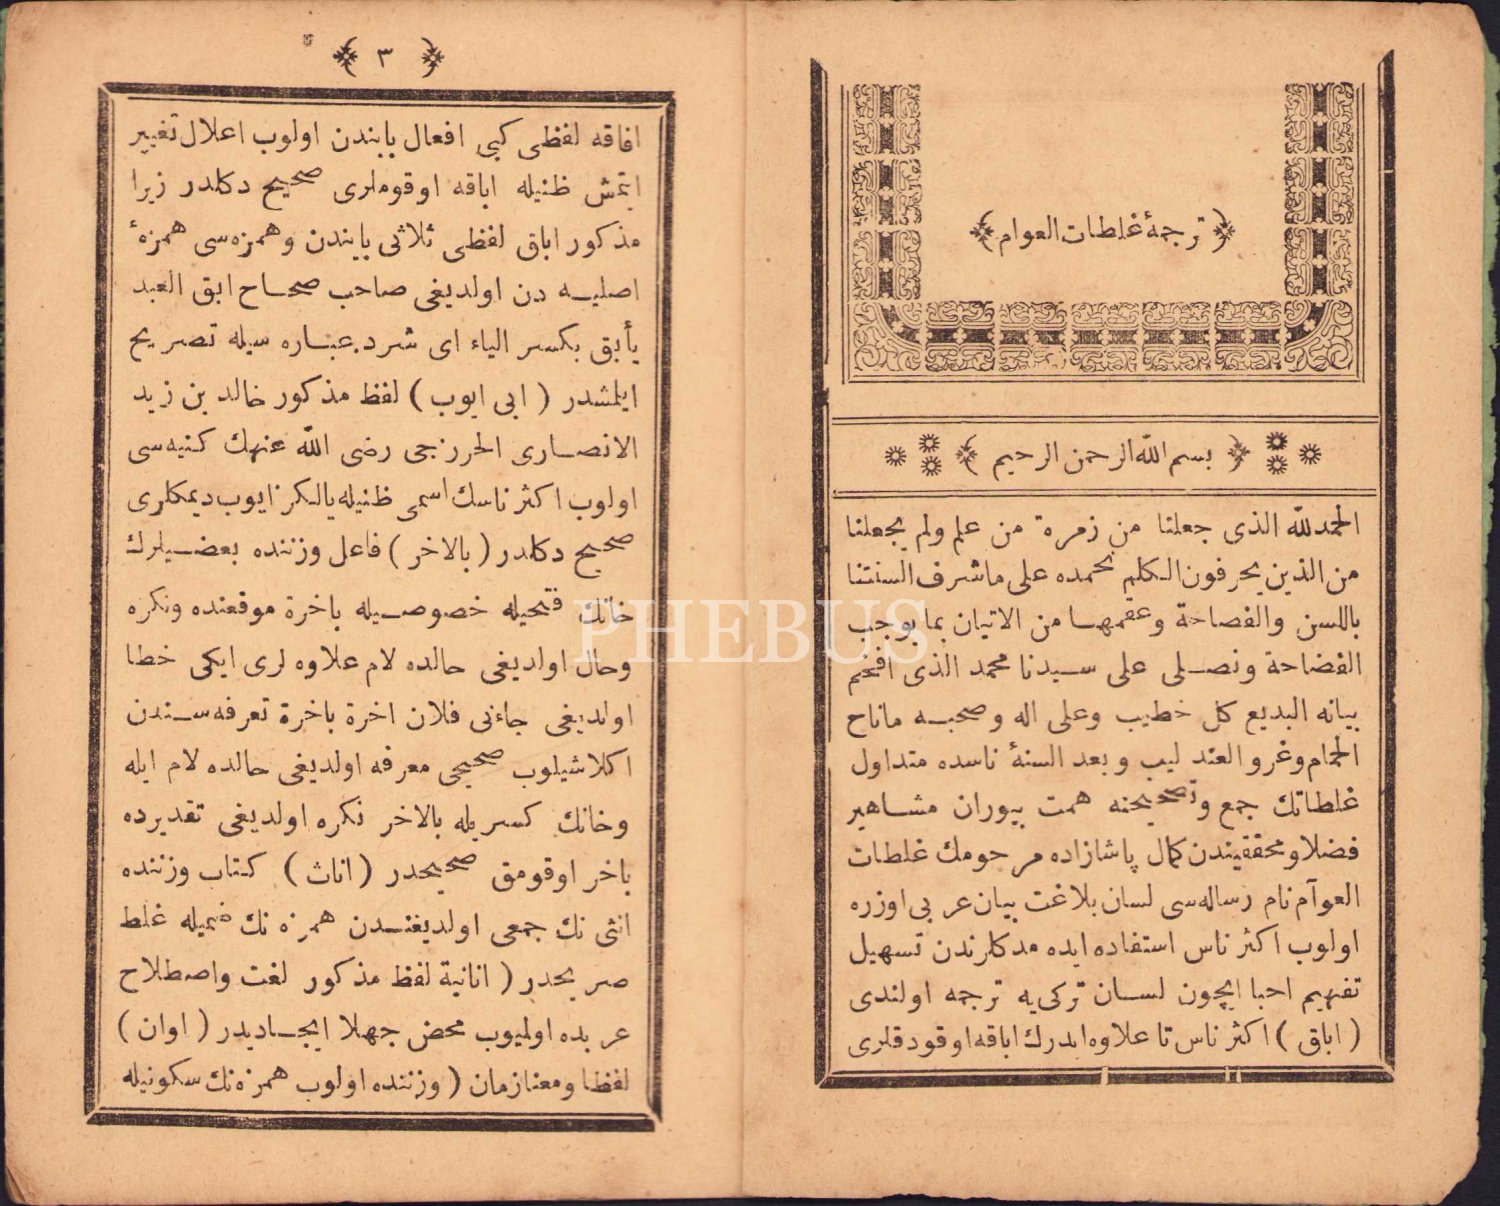 ترجمهٔ غلطات العوام
بسم الله الرحمن الرحيم
الحمدلله الذى جعلنا من زمرة من علم ولم يجعلنا
من الذين يحرفون الكلم نحمده على ماشرف السنتنا
باللسن والفصاحة وعقمها من الاتيان بما يوجب
الفضاحة ونصلى على سيدنا محمد الذى افخم
بيانه البديع كل خطيب وعلى اله وصحبه ماناح
الحمام وغرو العندليب وبعد السنهٔ ناسده متداول
غلطاتك جمع وتصحيحنه همت بيوران مشاهير
فضلا ومحققيندن كمال پاشازاده مرحومك غلطات
العوآم نام رساله‌سى لسان بلاغت بيان عربى اوزره
اولوب اكثر ناس استفاده ايده مدكلرندن تسهيل
تفهيم احبا ايچون لسان تركى‌يه ترجمه اولندى
( اباق ) اكثر ناس تا علاوه ايدرك اباقه اوقودقلرى
٣
افاقه لفظى كبى افعال بابندن اولوب اعلال تغيير
ايتمش ظنيله اباقه اوقوملرى صحيح دكلدر زيرا
مذكور اباق لفظى ثلاثى بابندن وهمزه‌سى همزهٔ
اصليه دن اولديغى صاحب صحاح ابق العبد
يأبق بكسر الياء اى شرد عباره سيله تصريح
ايلمشدر ( ابى ايوب ) لفظ مذكور خالد بن زيد
الانصارى الخرزجى رضى الله عنهك كنيه‌سى
اولوب اكثر ناسك اسمى ظنيله يالكز ايوب ديمكلرى
صحيح دكلدر ( بالاخر ) فاعل وزننده بعضيلرك
خانك فتحيله خصوصيله باخرة موقعنده ونكره
وحال اولديغى حالده لام علاوه لرى ايكى خطا
اولديغى جاءنى فلان اخرة باخرة تعرفه‌سندن
اكلاشيلوب صحيحى معرفه اولديغى حالده لام ايله
وخانك كسريله بالاخر نكره اولديغى تقديرده
باخر اوقومق صحيحدر ( اناث ) كتاب وزننده
انثى نك جمعى اولديغندن همزه نك ضميله غلط
صريحدر ( انانية لفظ مذكور لغت واصطلاح
عربده اولميوب محض جهلا ايجاديدر ( اوان )
لفظا ومعنا زمان ( وزننده اولوب همزه نك سكونيله
PHEBUS